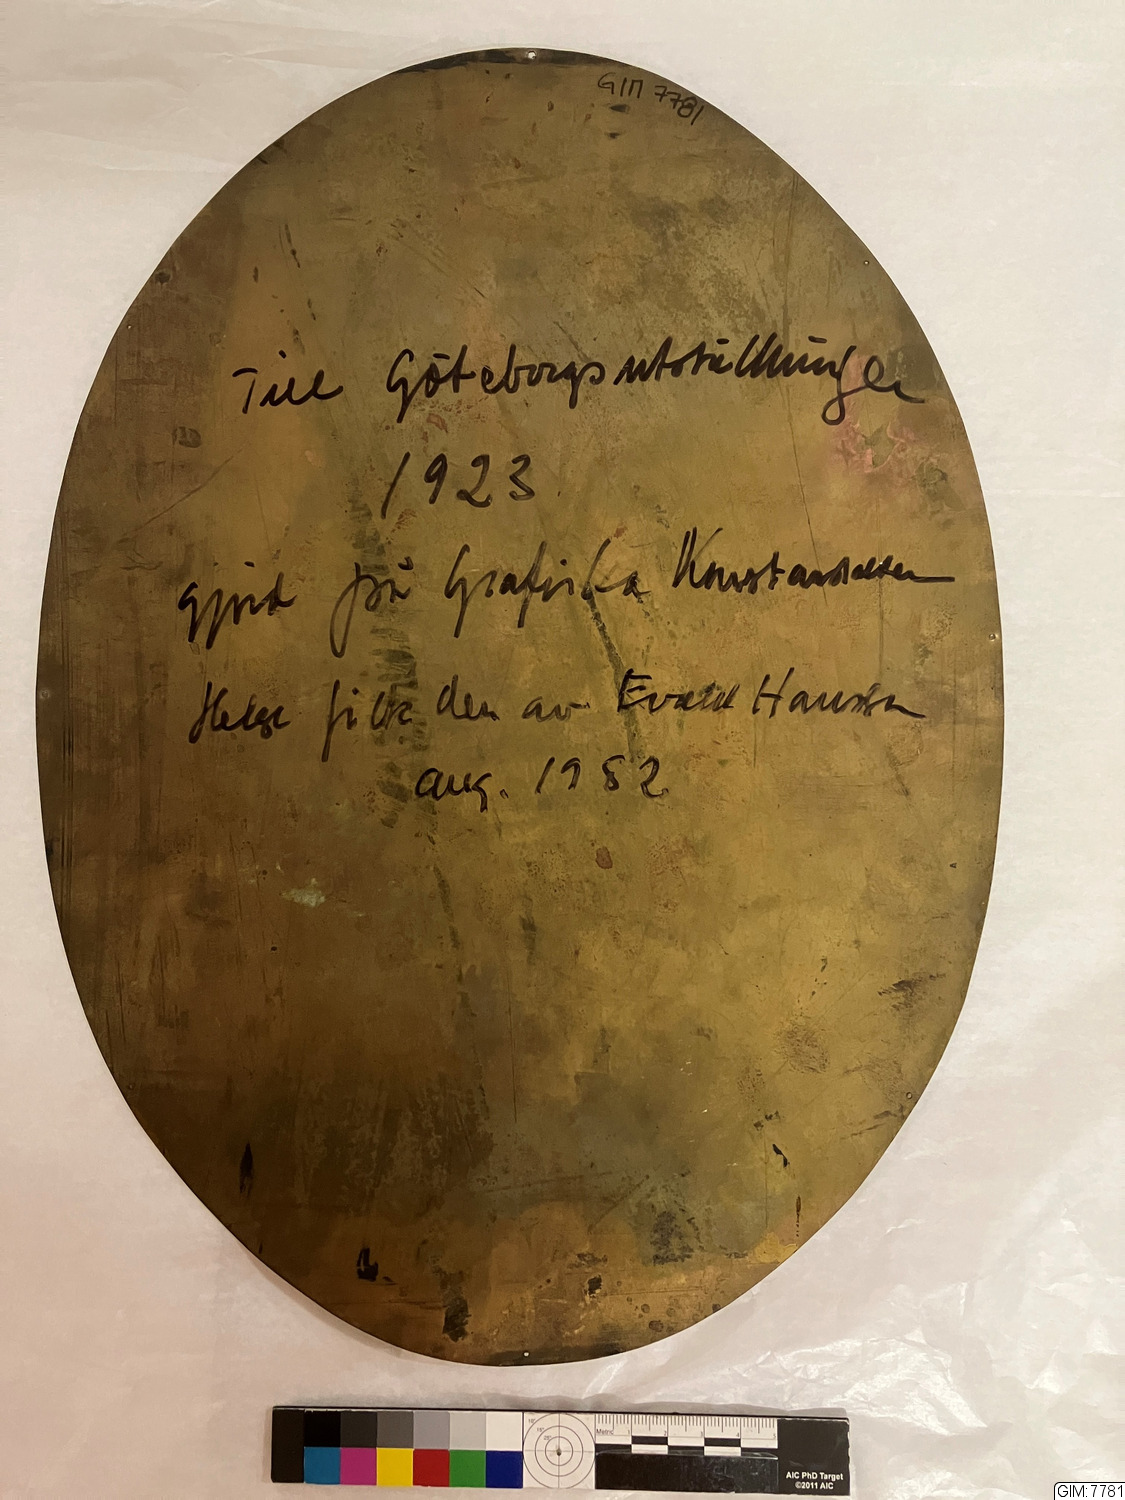 GIM 7781
Till Göteborgsutställningen
1923
gjord på Grafiska Konstanstalten
Helge fick den av Evald Hansson
aug. 1982
Metric 1 2 3 4 5
AIC PhD Target
©2011 AIC
GIM:7781